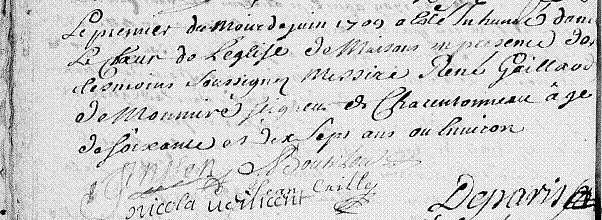 Le premier du Mois de juin 1709 a Esté Inhumé dans
Le Chœur de l'eglise de Maisons en presence des
tesmoins Soussignez Messire René Gaillard
de Monmiré seigneur de Charentonneau âgé
de soixante et dix sept ans ou Environ
N Boutillou
nicola vincent Jean Cailly Deparis